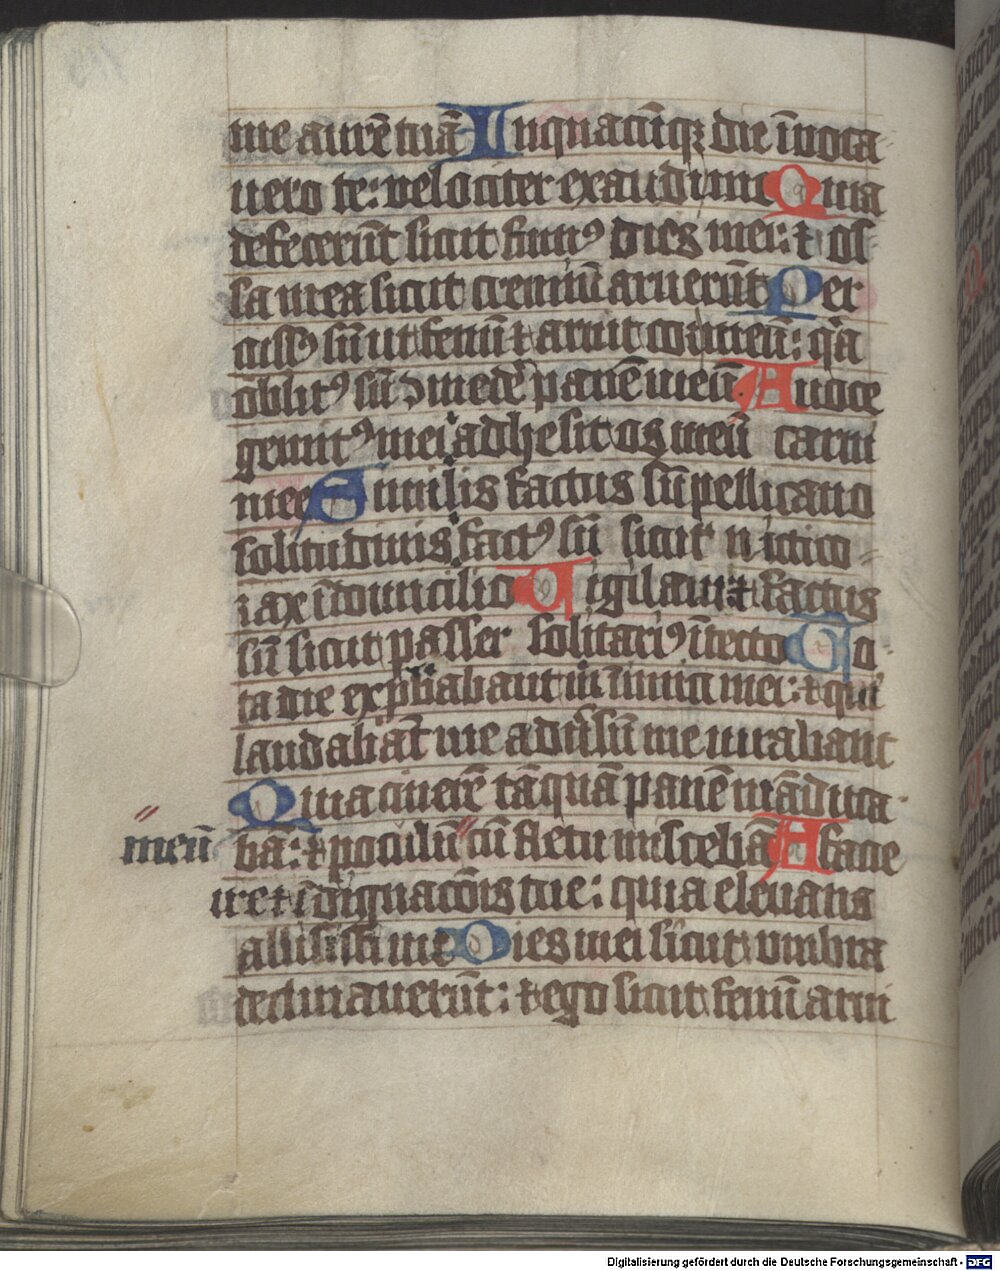 me aurē tuā In quacūq; die īuoca
uero te: velociter exaudi me Quia
defecerūt sicut fumꝰ dies mei: ⁊ os
sa mea sicut cremiū aruerūt Per
cussꝰ sū ut fenū ⁊ aruit cor meū: q̄a
oblitꝰ sū ɔmedeʳ panē meū. A uoce
gemitꝰ mei adhesit os meū carni
mee Similis factus sū pellicano
solitudinis factꝰ sū sicut nictico
rax ī domicilio Vigilaui ⁊ factus
sū sicut passer solitariꝰ ī tecto To
ta die exp̄babant m̄ inimici mei: ⁊ qui
laudabāt me aduʼsū me iurabant
Quia cinerē tāquā panē māduca
bā: ⁊ poculū cū fletu miscebā A facie
meū
ire ⁊ īdignacōis tue: quia eleuans
allisisti me Dies mei sicut vmbra
declinauerūt: ⁊ ego sicut fenū arui
Digitalisierung gefördert durch die Deutsche Forschungsgemeinschaft - DFG